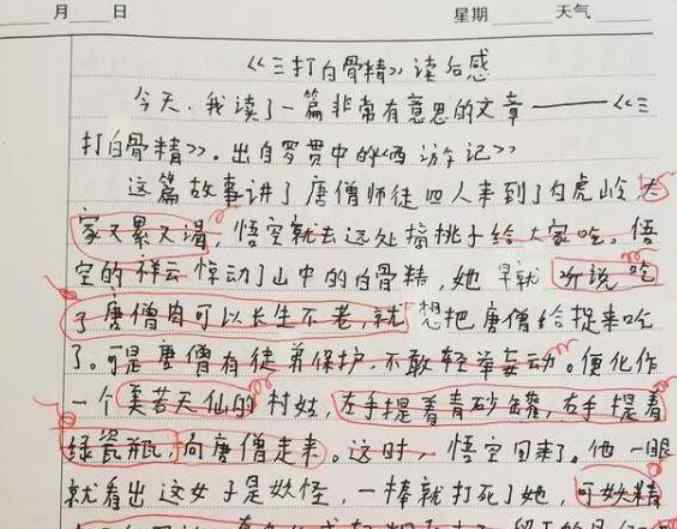 月 日 星期 天气
《三打白骨精》读后感
今天.我读了一篇非常有意思的文章——《三
打白骨精》。出自罗贯中的《西游记》
这篇故事讲了唐僧师徒四人来到了白虎岭.大
家又累又渴,悟空就去远处摘桃子给大家吃。悟
空的祥云惊动了山中的白骨精,她早就听说吃
了唐僧肉可以长生不老,就想把唐僧给捉来吃
了。可是唐僧有徒弟保护.不敢轻举妄动。便化作
一个美若天仙的村姑,左手提着青砂罐,右手提着
绿瓷瓶,向唐僧走来。这时,悟空回来了。他一眼
就看出这女子是妖怪,一棒就打死了她,可妖精